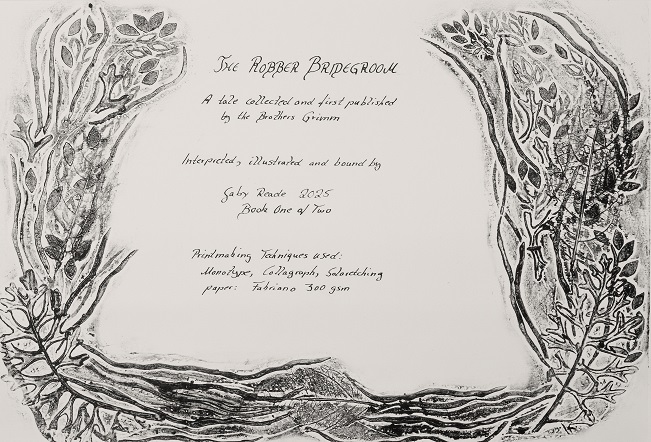 THE ROBBER BRIDEGROOM
A tale collected and first published
by the Brothers Grimm
Interpreted, illustrated and bound by
Gaby Reade 2025
Book One of Two
Printmaking Techniques used:
Monotype, Collagraph, Solaretching
paper: Fabriano 300 gsm